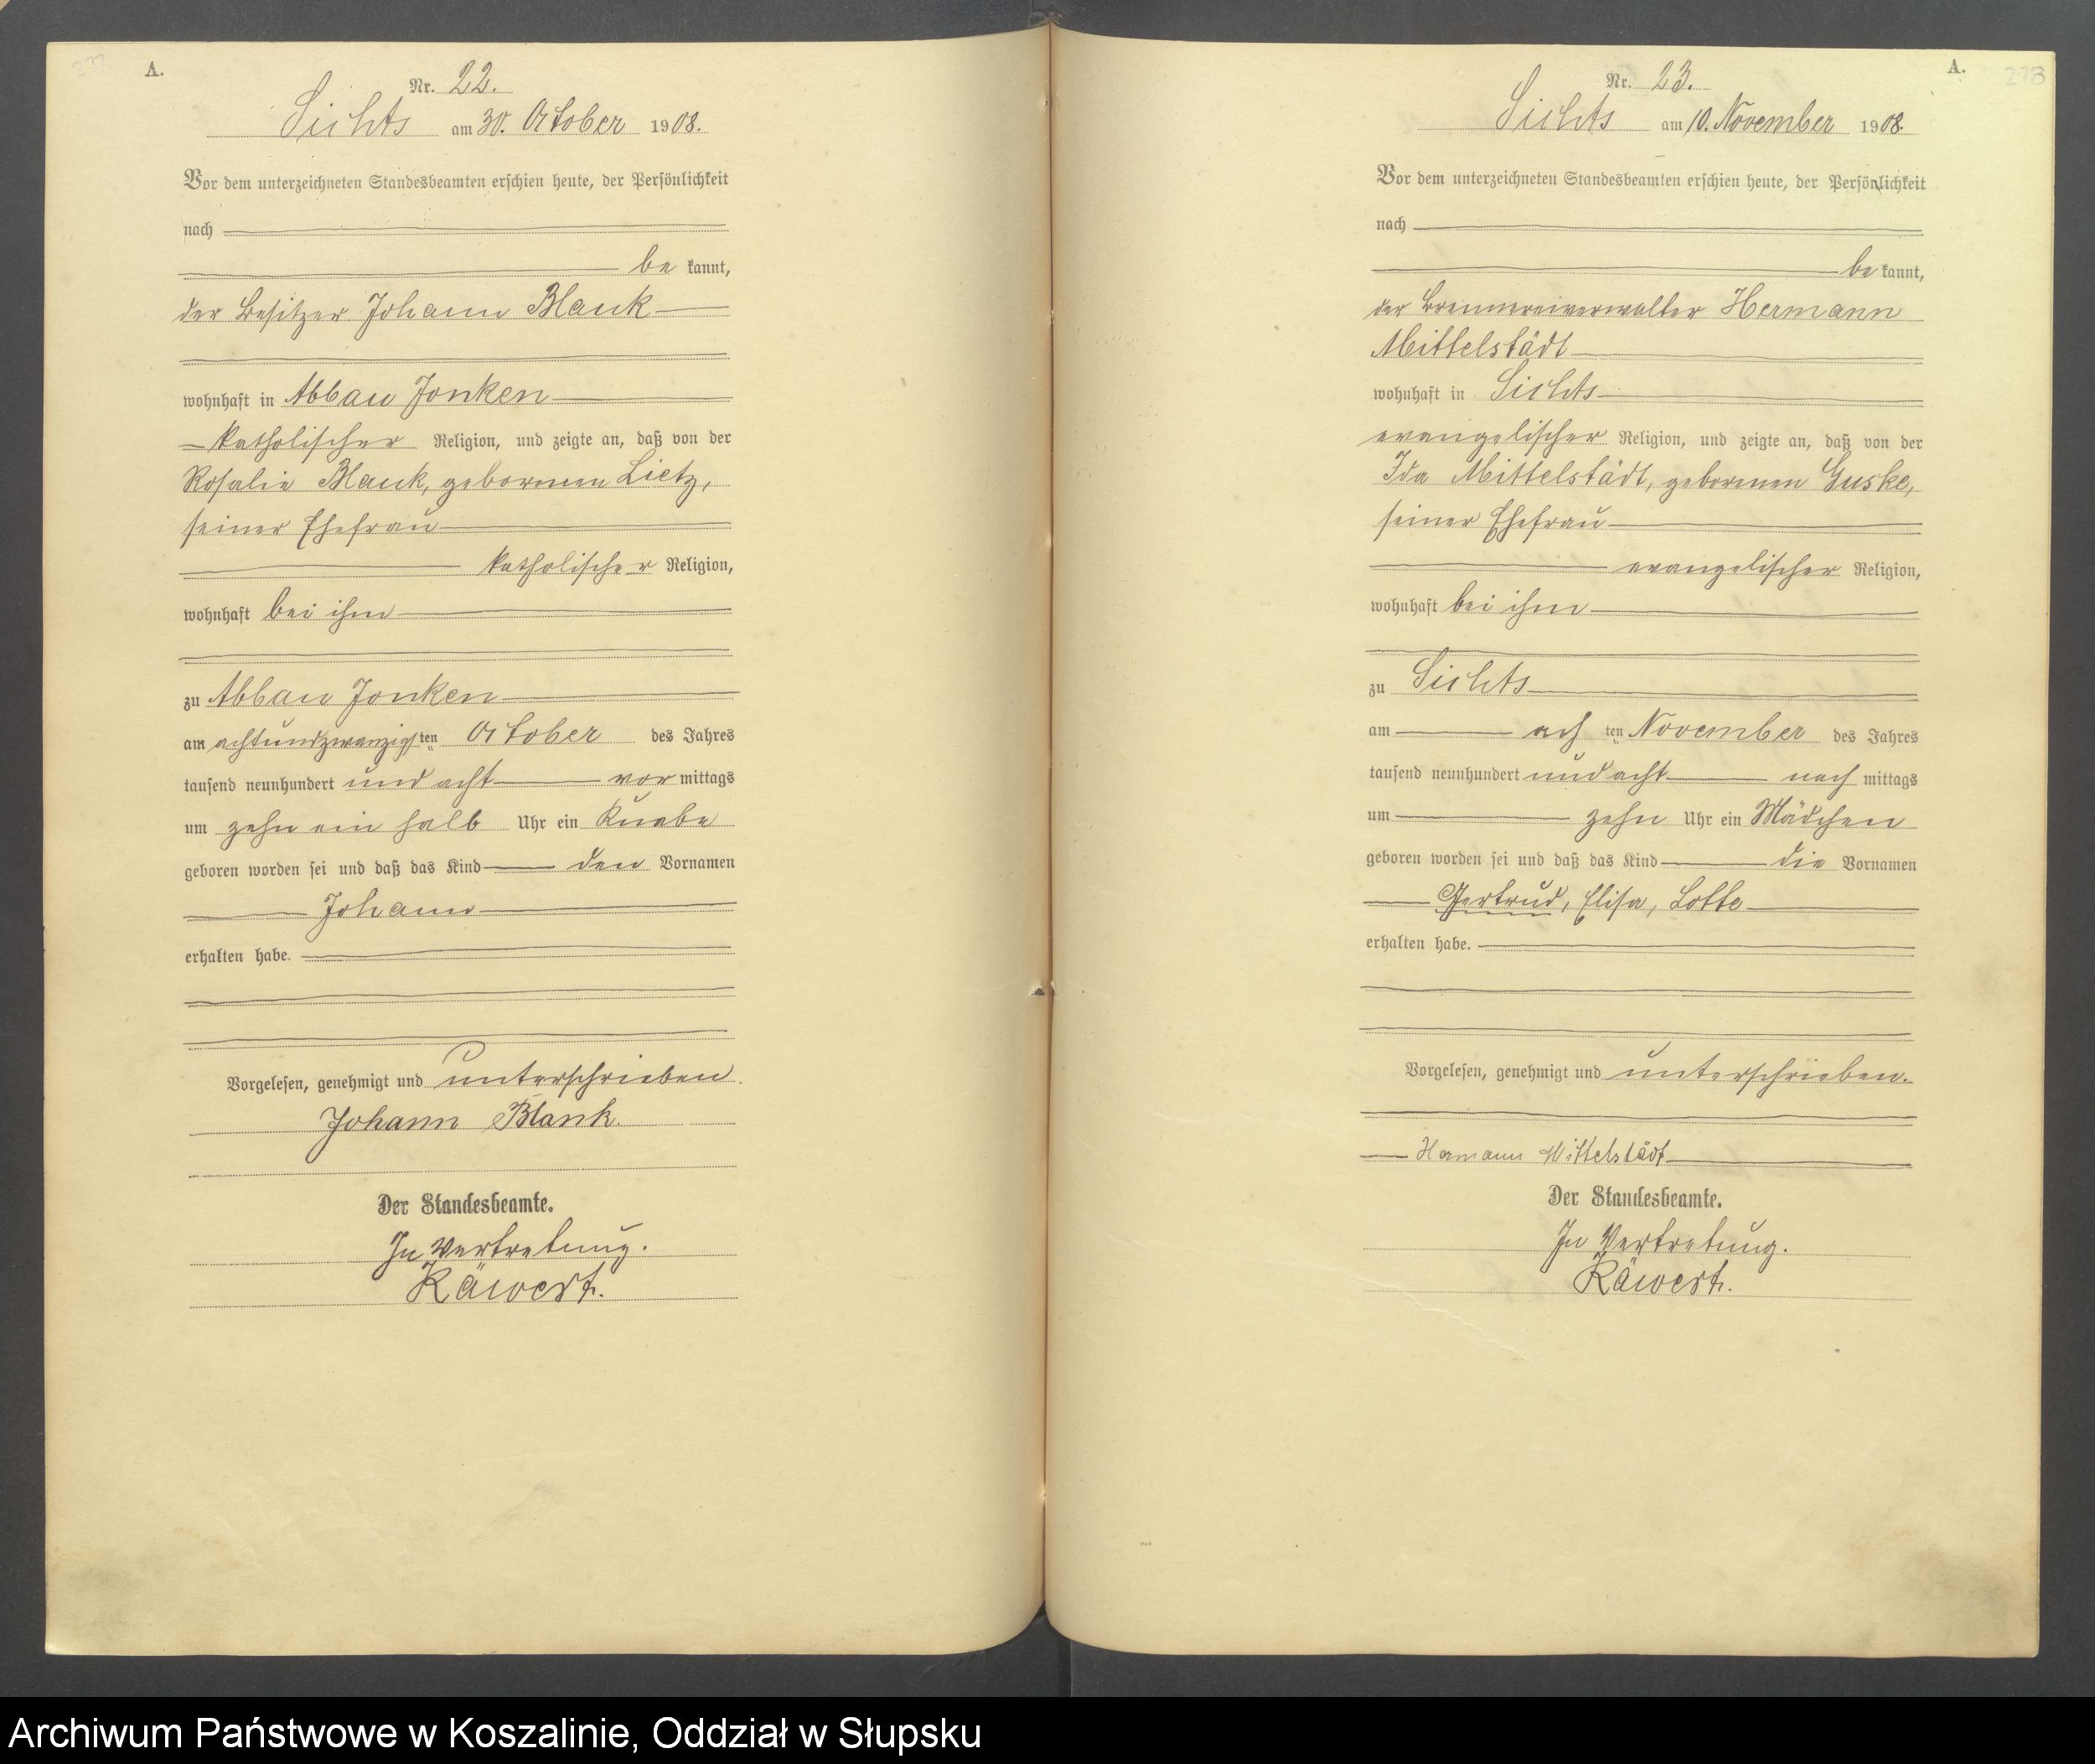 A.
Nr. 22.
Sichts am 30. October 1908.
Vor dem unterzeichneten Standesbeamten erschien heute, der Persönlichkeit
nach
be kannt,
der Besitzer Johann Blank
wohnhaft in Abbau Jonken
katholischer Religion, und zeigte an, daß von der
Rosalie Blank, geborenen Lietz,
seiner Ehefrau
katholischer Religion,
wohnhaft bei ihm
zu Abbau Jonken
am achtundzwanzigsten October des Jahres
tausend neunhundert und acht vor mittags
um zehn ein halb Uhr ein Knabe
geboren worden sei und daß das Kind den Vornamen
Johann
erhalten habe.
Vorgelesen, genehmigt und unterschrieben.
Johann Blank.
Der Standesbeamte.
In Vertretung.
Räwert.
A. 278
Nr. 23.
Sichts am 10. November 1908.
Vor dem unterzeichneten Standesbeamten erschien heute, der Persönlichkeit
nach
be kannt,
der Brennereiverwalter Hermann
Mittelstädt
wohnhaft in Sichts
evangelischer Religion, und zeigte an, daß von der
Ida Mittelstädt, geborenen Guske,
seiner Ehefrau
evangelischer Religion,
wohnhaft bei ihm
zu Sichts
am ach ten November des Jahres
tausend neunhundert und acht nach mittags
um zehn Uhr ein Mädchen
geboren worden sei und daß das Kind die Vornamen
Gertrud, Elisa, Lotte
erhalten habe.
Vorgelesen, genehmigt und unterschrieben.
Hermann Mittelstädt
Der Standesbeamte.
In Vertretung.
Räwert.
Archiwum Państwowe w Koszalinie, Oddział w Słupsku